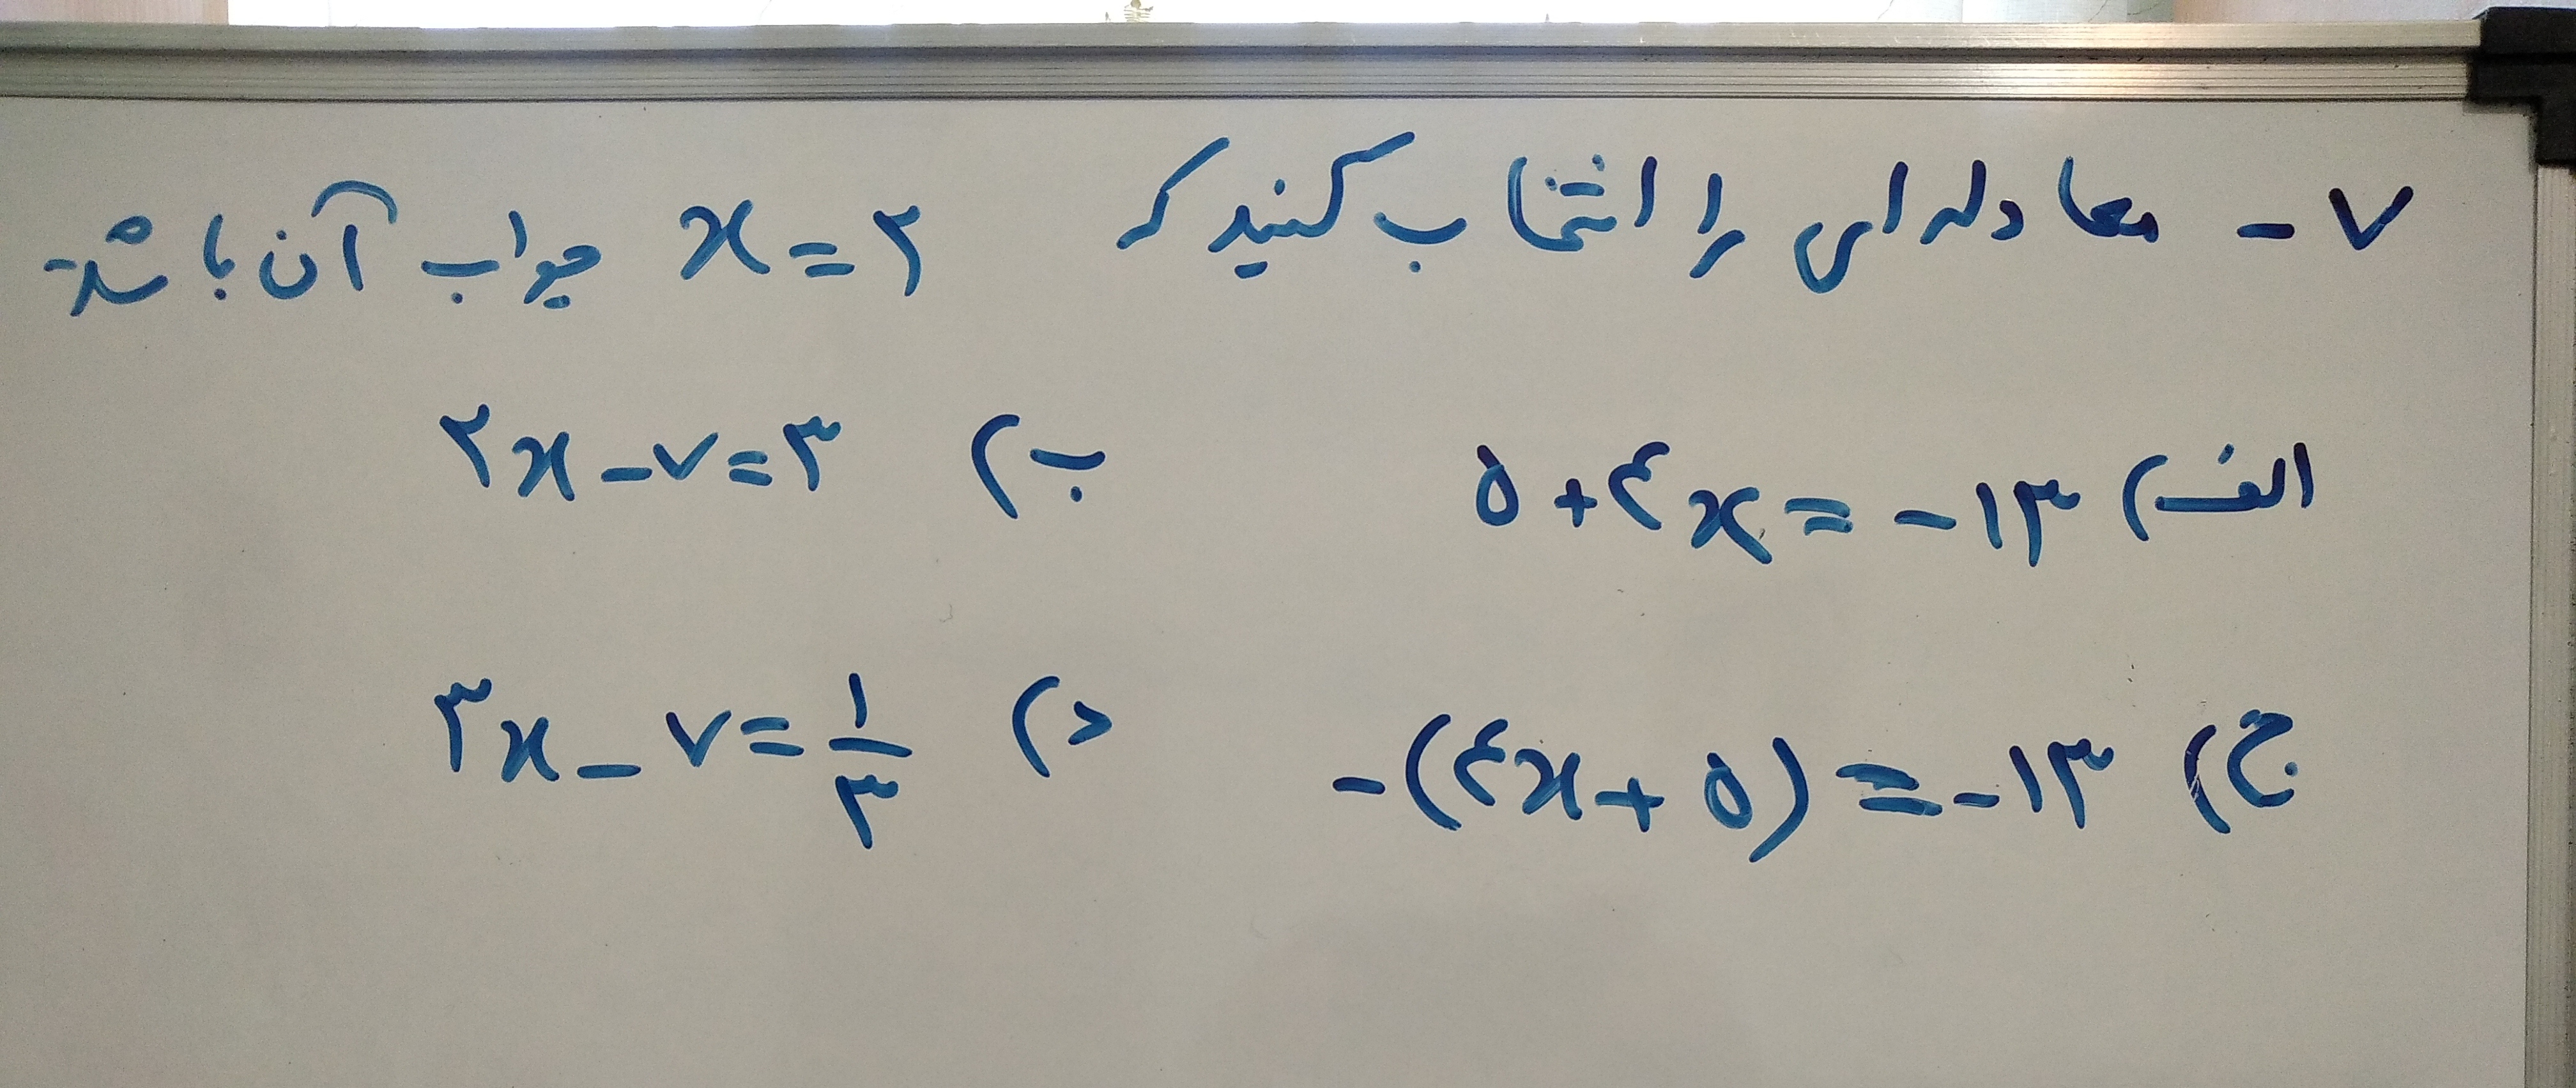 ۷- معادله ای را انتخاب کنید که x = ۲ جواب آن باشد-
الف) ۵ + ۴x = -۱۳ ب) ۲x - ۷ = ۳
ج) -(۴x + ۵) = -۱۳ د) ۳x - ۷ = ۱/۳